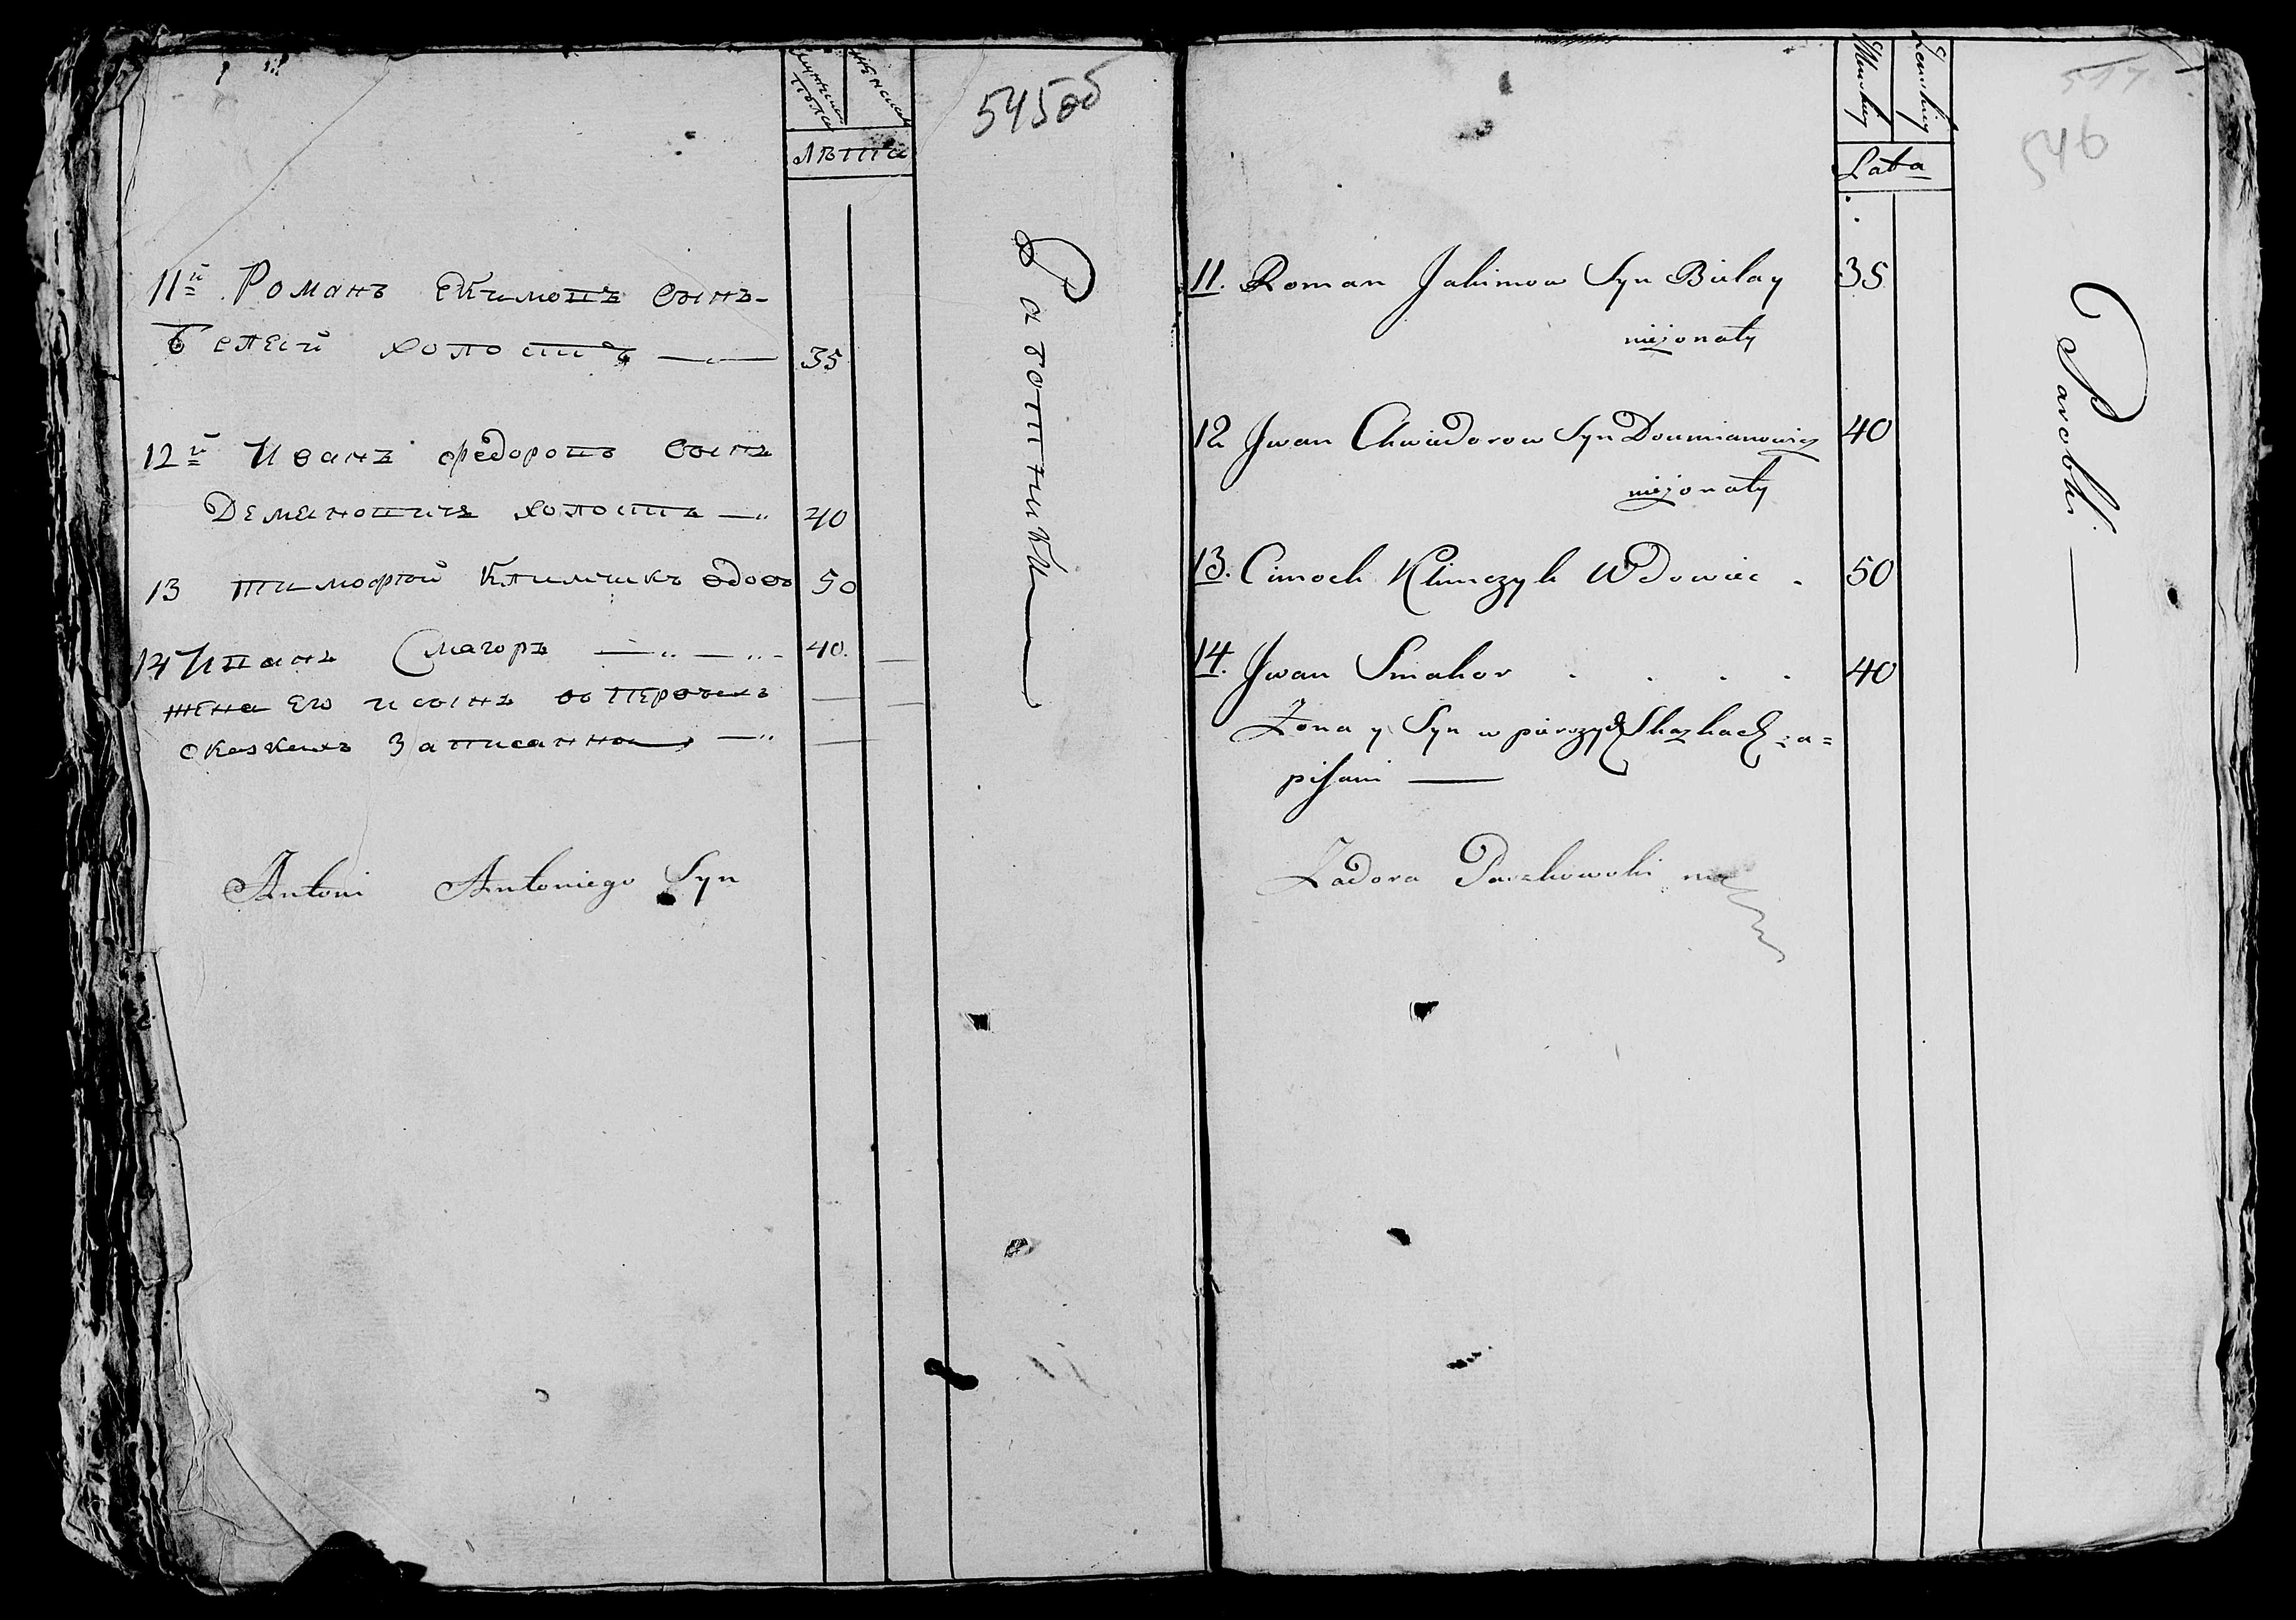 мужеска пола
женска
лѣта
545об
11й Романъ екимовъ сынъ
белей холостъ — 35
12й Иванъ федоровъ сынъ
Демяновичъ холостъ — 40
13 тимофей Климчикъ вдовъ 50
14 Иванъ Смагоръ — 40.
жена его и сынъ въ первыхъ
сказкахъ записанны —
Работники
Antoni Antoniego Syn
Męskiey
Żenskiey
Lata
546
11. Roman Jakimow Syn Bielay 35
nieżonaty
12 Jwan Chwiedorow Syn Doumianowicz 40
nieżonaty
13. Cimoch Klimczyk Wdowiec . 50
14. Jwan Smahor . . . . 40
Żona y Syn w pierszych Skazkach za=
pisani —
Zadora Paszkowski
Parobki —